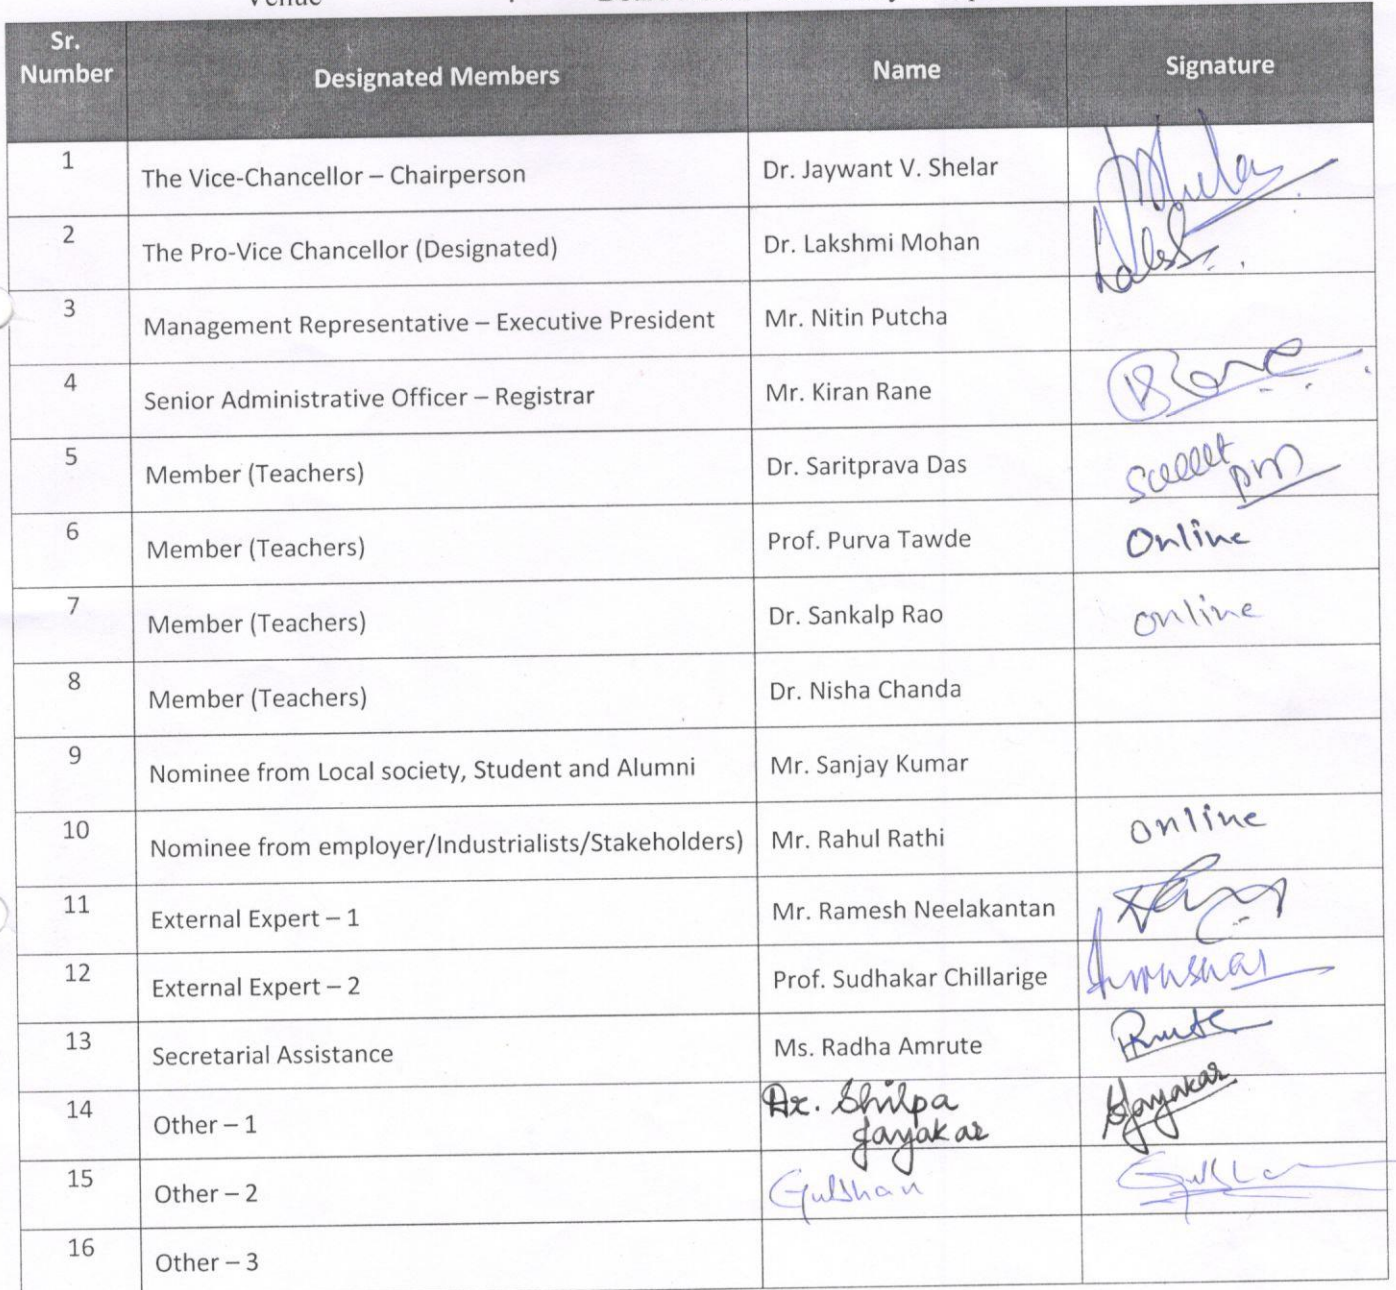 Venue
Sr. Number Designated Members Name Signature
1 The Vice-Chancellor – Chairperson Dr. Jaywant V. Shelar
2 The Pro-Vice Chancellor (Designated) Dr. Lakshmi Mohan
3 Management Representative – Executive President Mr. Nitin Putcha
4 Senior Administrative Officer – Registrar Mr. Kiran Rane Rane
5 Member (Teachers) Dr. Saritprava Das
6 Member (Teachers) Prof. Purva Tawde Online
7 Member (Teachers) Dr. Sankalp Rao online
8 Member (Teachers) Dr. Nisha Chanda
9 Nominee from Local society, Student and Alumni Mr. Sanjay Kumar
10 Nominee from employer/Industrialists/Stakeholders) Mr. Rahul Rathi online
11 External Expert – 1 Mr. Ramesh Neelakantan
12 External Expert – 2 Prof. Sudhakar Chillarige
13 Secretarial Assistance Ms. Radha Amrute
14 Other – 1 Dr. Shilpa Jayakar Jayakar
15 Other – 2 Gulshan
16 Other – 3